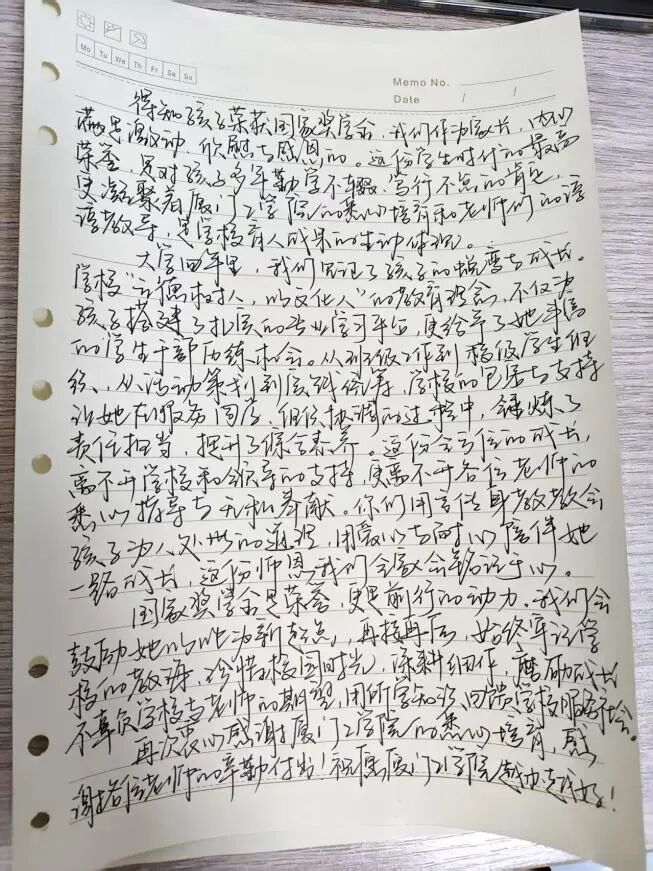 Mo Tu We Th Fr Sa Su
Memo No.
Date / /
得知孩子荣获国家奖学金，我们作为家长，内心
满是激动、欣慰与感恩的。这份学生时代的最高
荣誉，是对孩子多年勤学不辍、笃行不怠的肯定，
更凝聚着厦门工学院的悉心培育和老师们的谆
谆教导，是学校育人成果的生动体现。
大学四年里，我们见证了孩子的蜕变与成长。
学校“立德树人，以文化人”的教育理念，不仅为
孩子搭建了扎实的专业学习平台，更给予了她丰富
的学生干部历练机会。从班级工作到校级学生组
织、从活动策划到统筹，学校的包容与支持
让她在服务同学、组织协调的过程中，锤炼了
责任担当，提升了综合素养。这份全方位的成长，
离不开学校和领导的支持，更离不开各位老师的
悉心指导与无私奉献。你们用言传身教教会
孩子为人处世的道理，用爱心与耐心陪伴她
一路成长，这份师恩我们全家会铭记于心。
国家奖学金是荣誉，更是前行的动力。我们会
鼓励她以此为新起点，再接再厉，始终牢记学
校的教诲，珍惜校园时光，深耕细作，磨砺成长
不辜负学校与老师的期望，用所学知识回馈学校服务社会。
再次衷心感谢厦门工学院的悉心培育，感
谢各位老师的辛勤付出！祝愿厦门工学院越办越好！